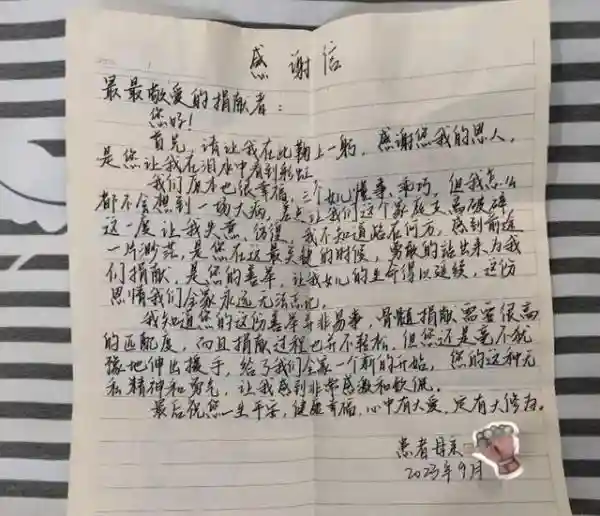 感谢信
最最敬爱的捐献者：
您好！
首先，请让我在此鞠上一躬，感谢您我的恩人，
是您让我在泪水中看到彩虹
我们原本也很幸福，三个女儿懂事、乖巧，但我怎么
都不会想到一场大病，差点让我们这个家庭支离破碎，
这一度让我失意、彷徨，我不知道路在何方，感到前途
一片渺茫，是您在这最关键的时候，勇敢的站出来为我
们捐献，是您的善举，让我女儿的生命得以延续，这份
恩情我们全家永远无法忘记。
我知道您的这份善举并非易事，骨髓捐献需要很高
的匹配度，而且捐献过程也并不轻松，但您还是毫不犹
豫地伸出援手，给了我们全家一个新的开始，您的这种无
私精神和勇气，让我感到非常感激和钦佩。
最后祝您一生平安，健康幸福，心中有大爱，定有大修为。
患者母亲
2023年9月